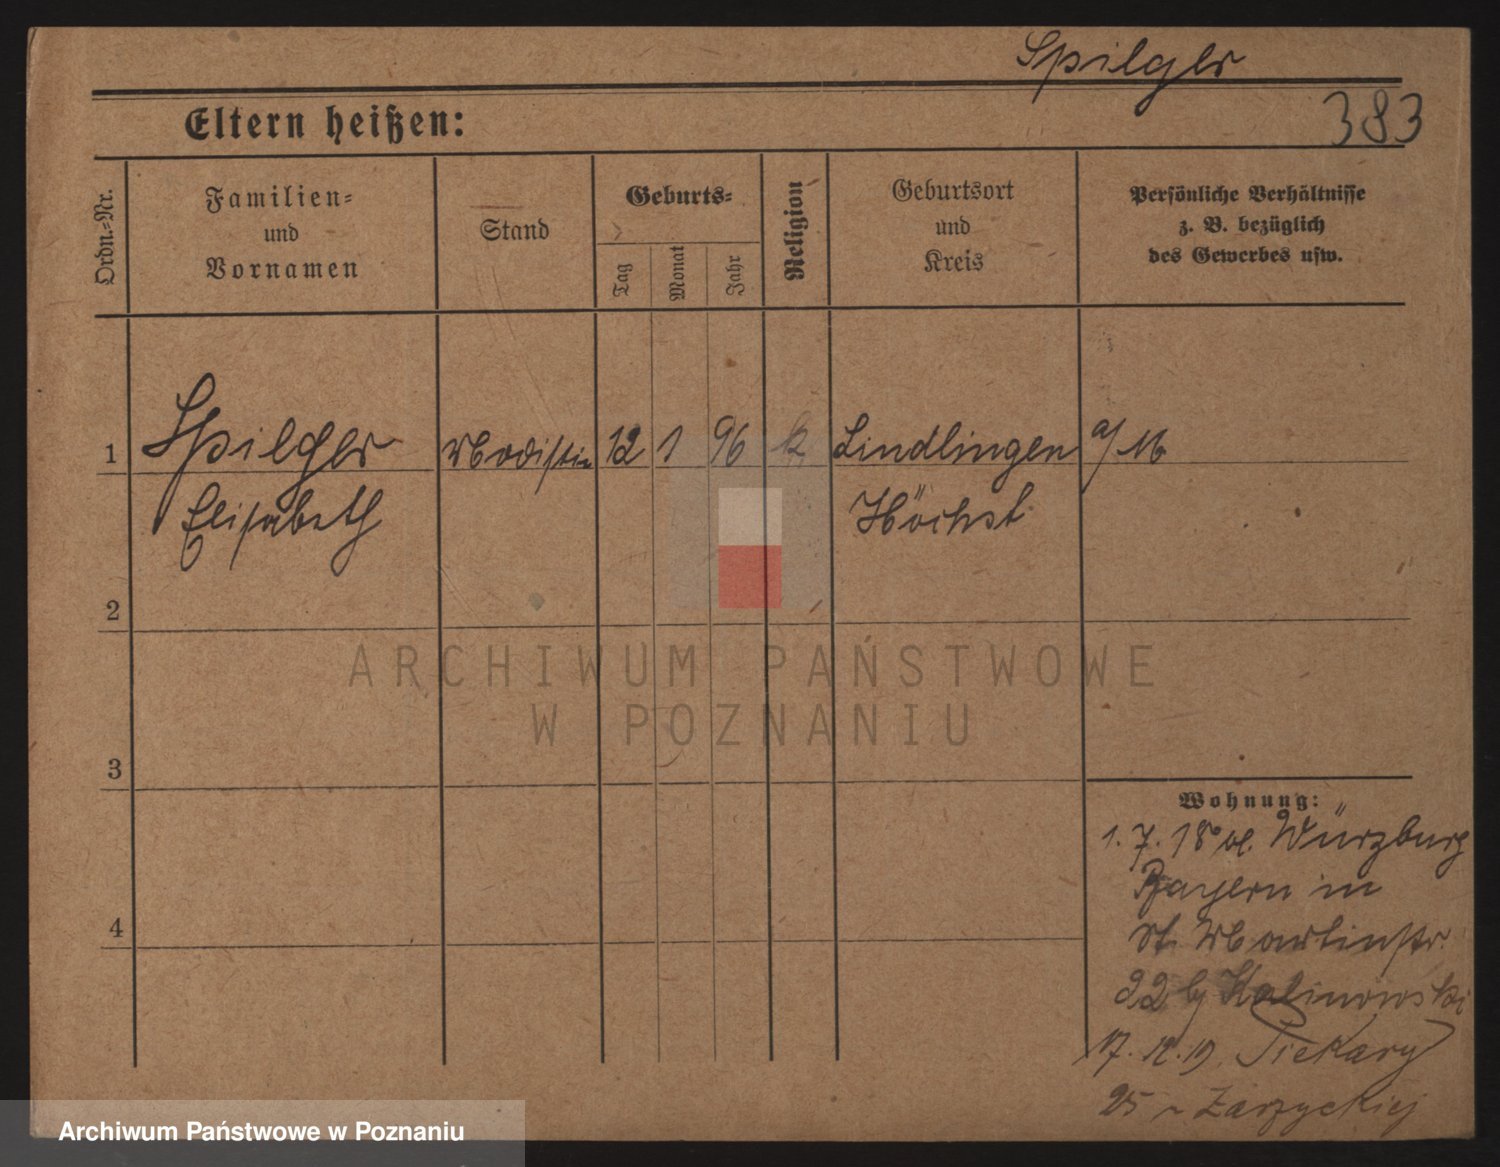 Spilger
383
Eltern heißen:
Ordn.=Nr.
Familien=
und
Vornamen
Stand
Geburts=
Tag
Monat
Jahr
Religion
Geburtsort
und
Kreis
Persönliche Verhältnisse
z. B. bezüglich
des Gewerbes usw.
1 Spilger Modistin 12 1 96 k Lindlingen a/16
Elisabeth Höchst
2
3
4
Wohnung:
1. 7. 18 Würzburg
Bayern in
St. Martinstr.
22 bj Kalinowski
17. 12. 19. Piekary
25 Zarzyckiej
ARCHIWUM PAŃSTWOWE
W POZNANIU
Archiwum Państwowe w Poznaniu